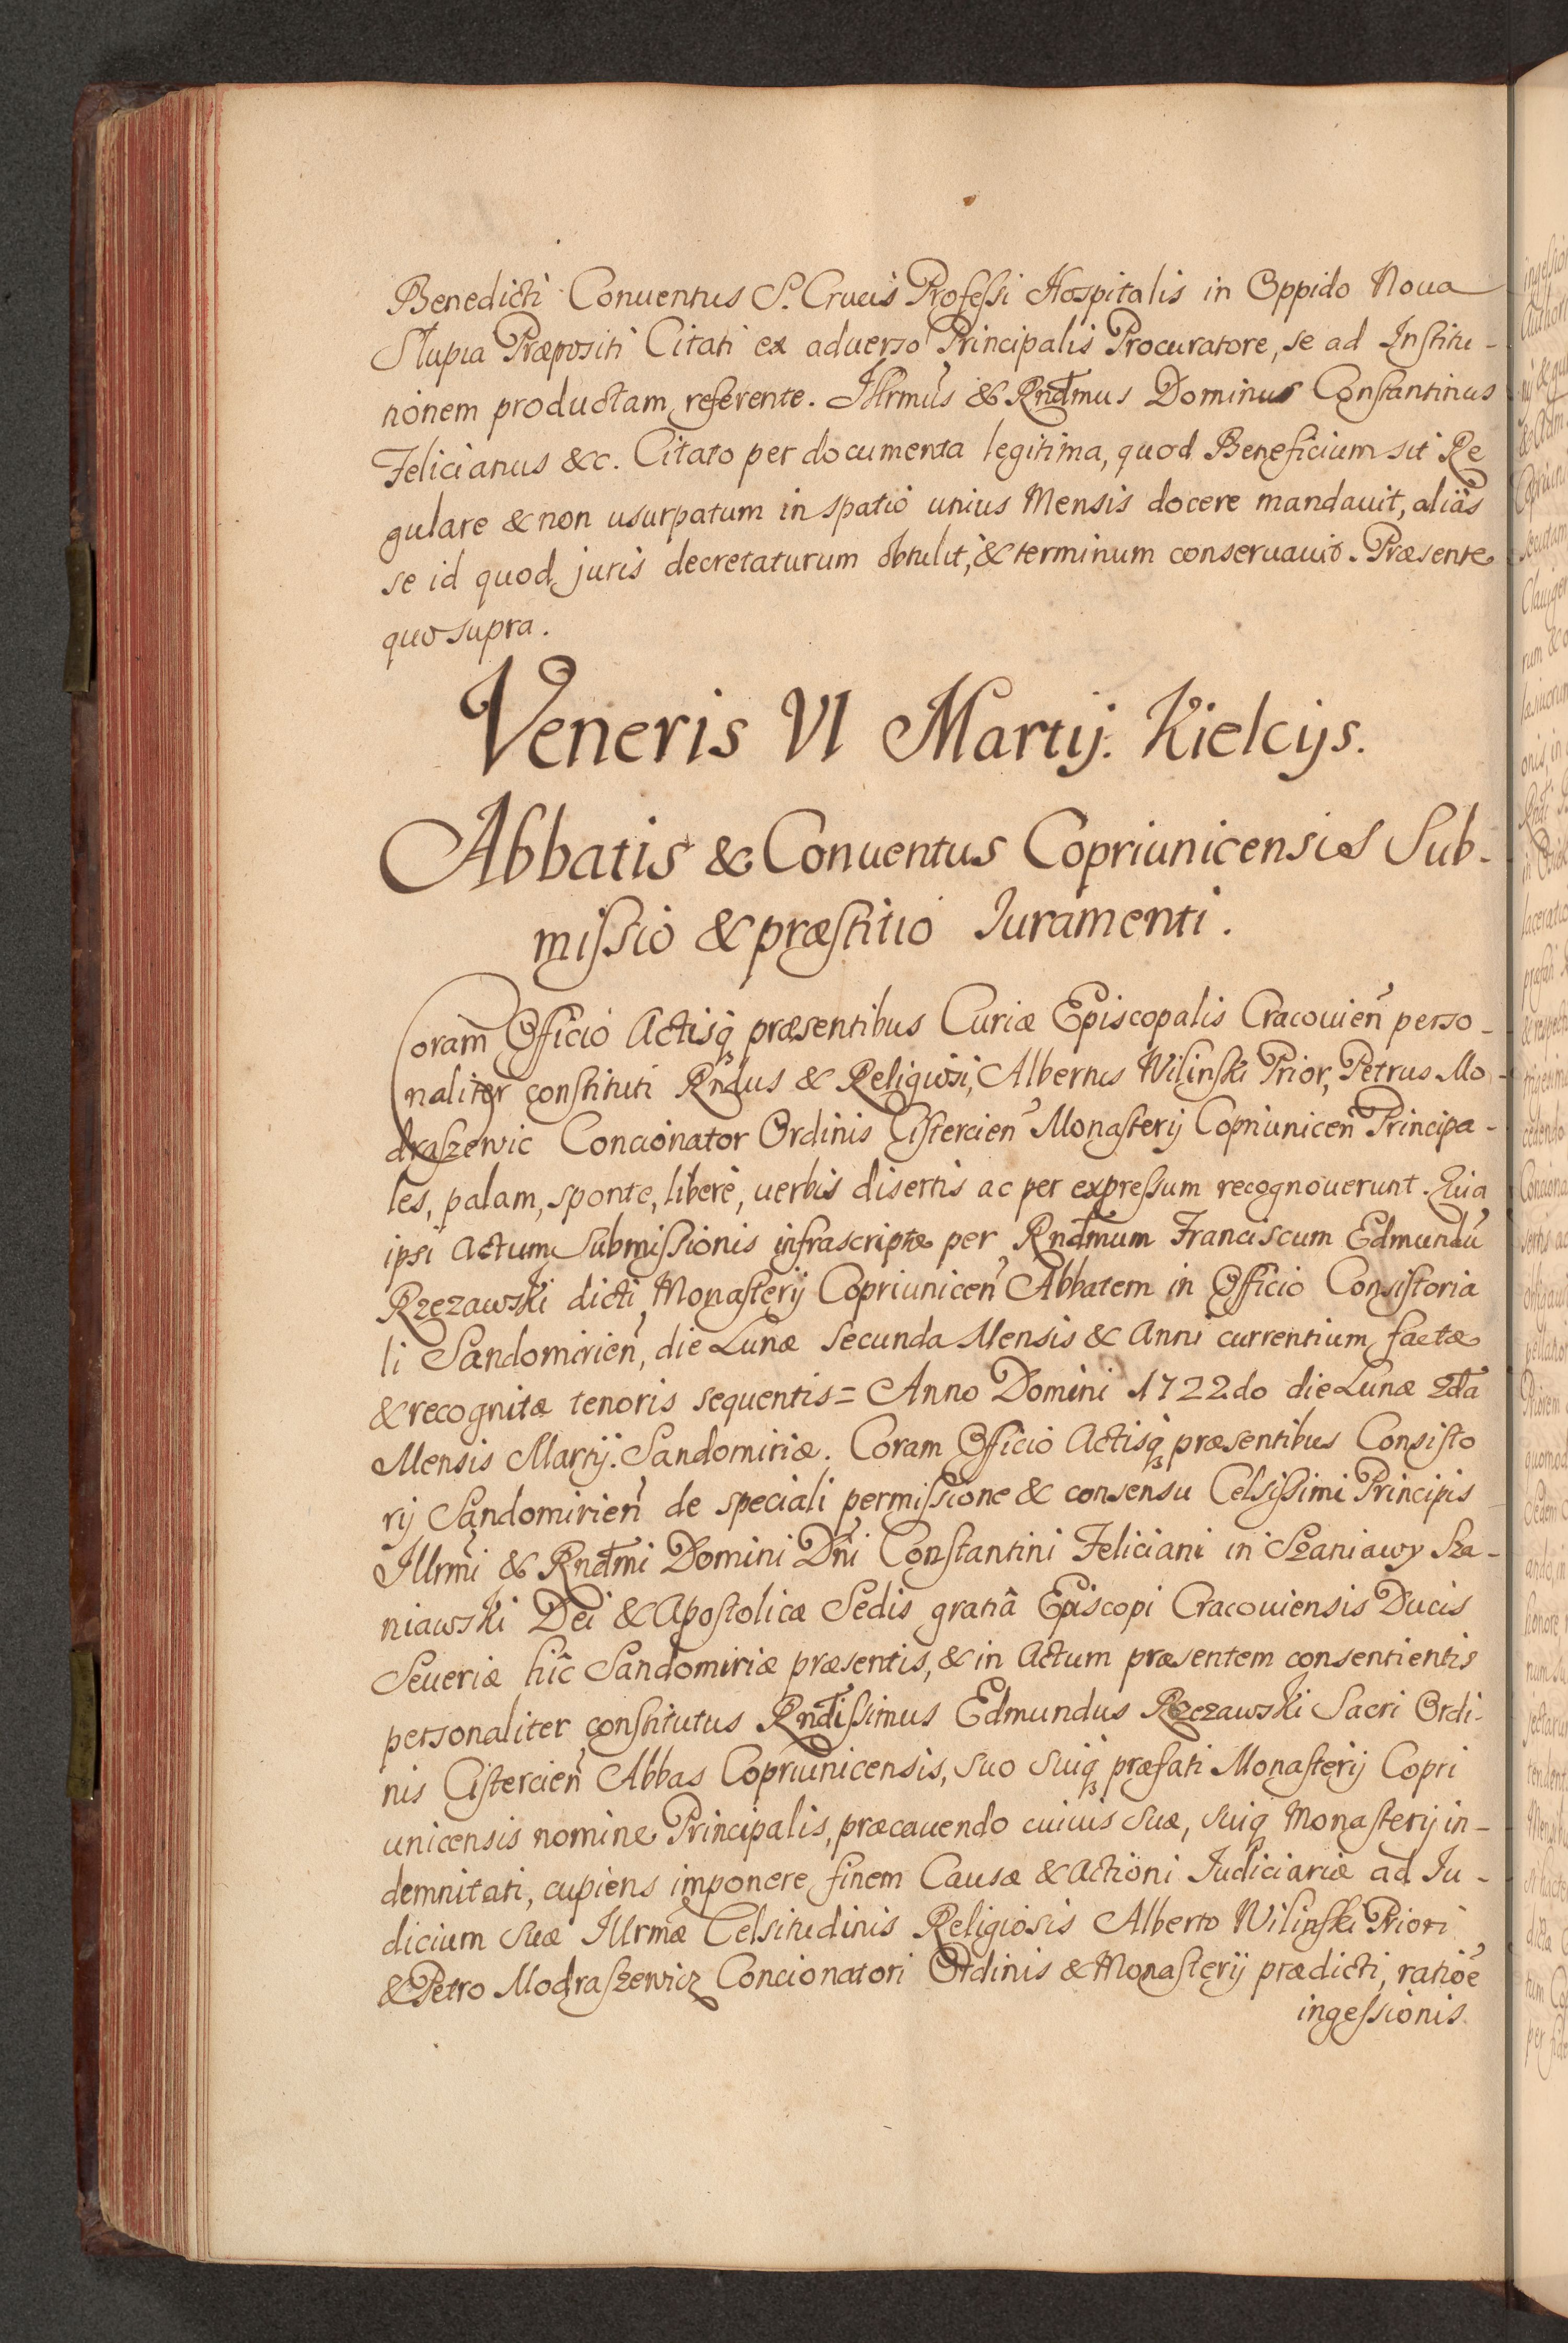 Benedicti Conventus S. Crucis Professi Hospitalis in Oppido Noua
Slupia Præpositi Citati ex aduerso Principalis Procuratore, se ad Institu-
tionem productam referente. Illrmus & Rndmus Dominus Constantinus
Felicianus &c. Citato per documenta legitima, quod Beneficium sit Re
gulare & non usurpatum in spatio unius Mensis docere mandauit, aliàs
se id quod juris decretaturum obtulit, & terminum conseruauit. Præsente
quo supra.
Veneris VI Martij. Kielcijs.
Abbatis & Conuentus Copriunicensis Sub-
missio & præstitio Iuramenti.
Coram Officio Actisq præsentibus Curiæ Episcopalis Cracouien perso-
naliter constituti Rndus & Religiosi, Albertus Wilinski Prior, Petrus Mo-
draszewic Concionator Ordinis Cistercien Monasterij Copriunicen Principa-
les, palam, sponte, liberè, uerbis disertis ac per expressum recognouerunt. Quia
ipsi Actum Submissionis infrascriptæ per Rndmum Franciscum Edmundu
Rzezawski dicti Monasterij Copriunicen Abbatem in Officio Consistoria
li Sandomirien, die Lunæ secunda Mensis & Anni currentium factæ
& recognitæ tenoris sequentis = Anno Domini 1722do die Lunæ 2da
Mensis Martij. Sandomiriæ. Coram Officio Actisq præsentibus Consisto
rij Sandomirien de speciali permissione & consensu Celsissimi Principis
Illrmi & Rndmi Domini Dni Constantini Feliciani in Szaniawy Sza-
niawski Dei & Apostolicæ Sedis gratiâ Episcopi Cracouiensis Ducis
Seueriæ hîc Sandomiriæ præsentis, & in Actum præsentem consentientis
personaliter constitutus Rndissimus Edmundus Rzezawski Sacri Ordi-
nis Cistercien Abbas Copriunicensis, suo suiq præfati Monasterij Copri
unicensis nomine Principalis, præcauendo cuiuis suæ, suiq Monasterij in-
demnitati, cupiens imponere finem Causæ & Actioni Iudiciariæ ad Iu-
dicium suæ Illrmæ Celsitudinis Religiosis Alberto Wilinski Priori
& Petro Modraszewicz Concionatori Ordinis & Monasterij prædicti, ratioe
ingessionis